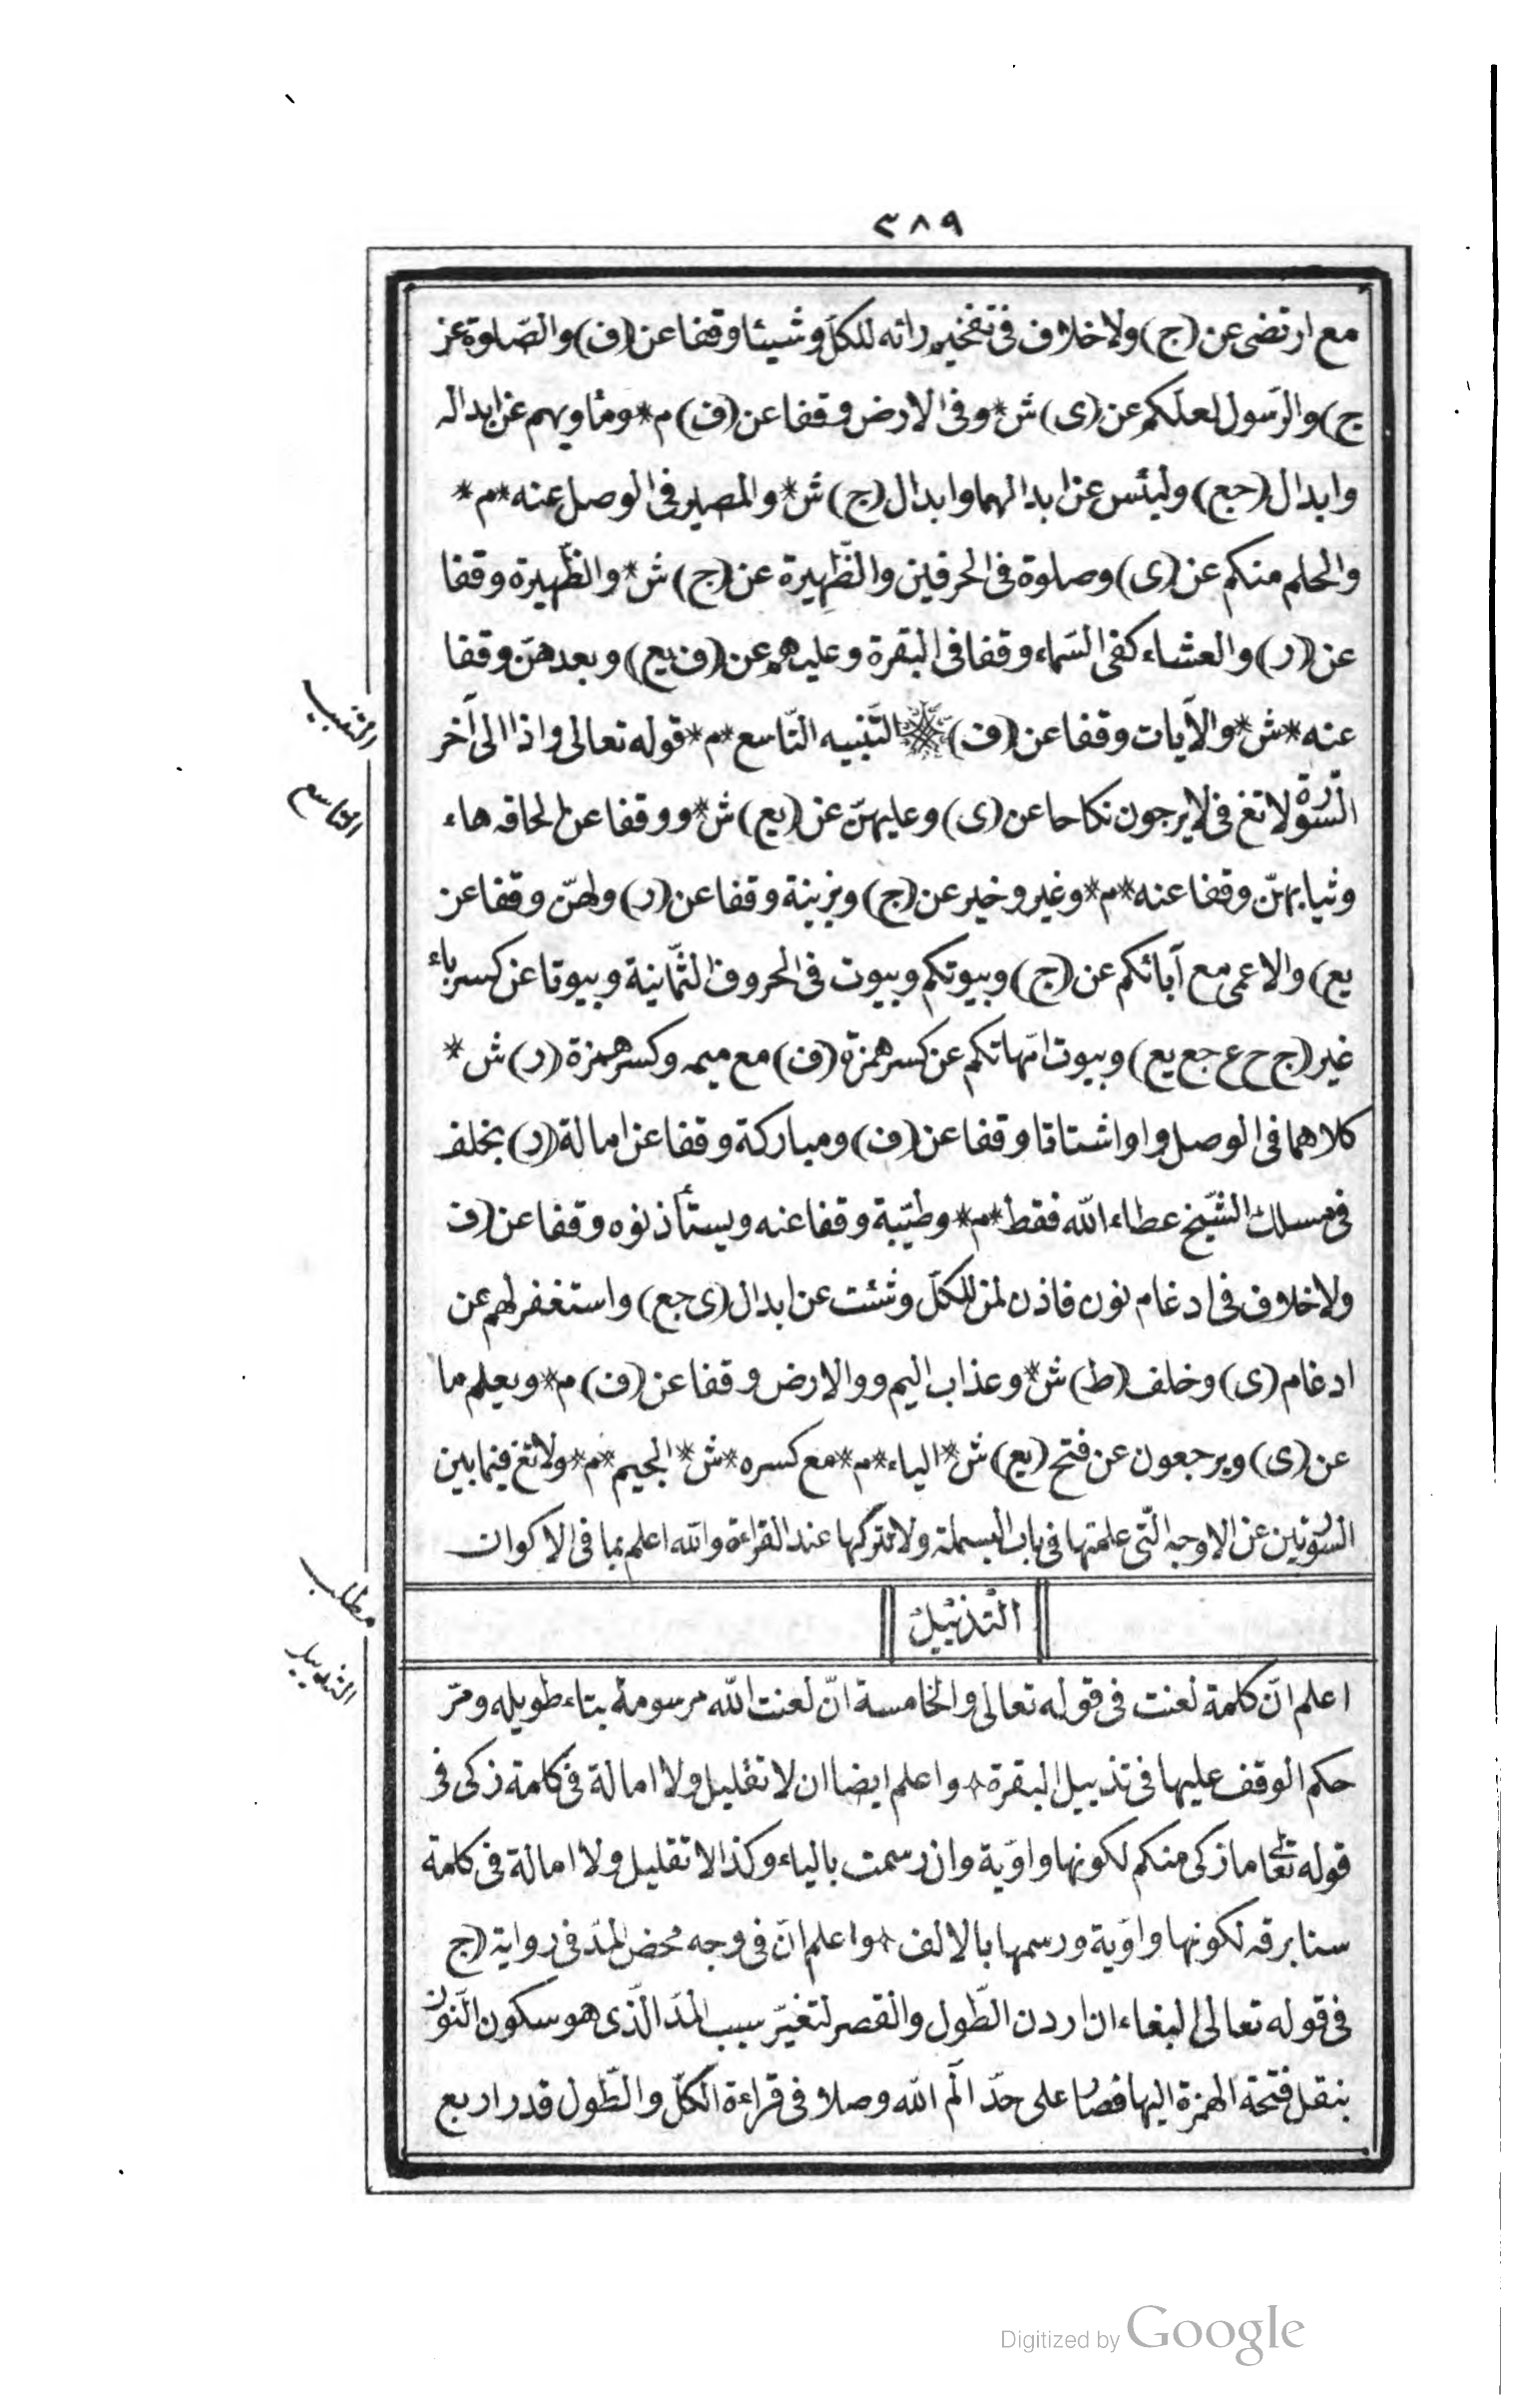 ٣٨٩
مع ارتضى عن (ج) ولا خلاف فى تفخيم رائه للكلّ وشيئا وقفا عن (ف) والصّلوة عن
ج) والرّسول لعلّكم عن (ى) ش * وفى الارض وقفا عن (ف) م * ومأويهم عن ابداله
وابدال (جع) ولبئس عن ابدالهما وابدال (ج) ش * والمصير فى الوصل عنه * م *
والحلم منكم عن (ى) وصلوة فى الحرفين والظّهيرة عن (ج) ش * والظّهيرة وقفا
عن (ر) والعشاء كفى السّماء وقفا فى البقرة وعليهم عن (ف يع) وبعدهنّ وقفا
عنه * ش * والآيات وقفا عن (ف) التّنبيه التّاسع * م * قوله تعالى واذا الى آخر
السّورة لا تغ فى لا يرجون نكاحا عن (ى) وعليهنّ عن (يع) ش * ووقفا عن الحاقه هاء
وثيابهنّ وقفا عنه * م * وغير وخير عن (ج) وبزينة وقفا عن (ر) ولهنّ وقفا عن
يع) والاعمى مع آبائكم عن (ج) وبيوتكم وبيوت فى الحروف الثّمانية وبيوتا عن كسر باء
غير (ج ح ع جع يع) وبيوت امّهاتكم عن كسر همزة (ف) مع ميمه وكسر همزة (ر) ش *
كلاهما فى الوصل واو اشتاتا وقفا عن (ف) ومباركة وقفا عن امالة (ر) بخلف
فى مسلك الشّيخ عطاء الله فقط * م * وطيّبة وقفا عنه ويستأذنوه وقفا عن (ف
ولا خلاف فى ادغام نون فاذن لمن للكلّ وشئت عن ابدال (ى جع) واستغفر لهم عن
ادغام (ى) وخلف (ط) ش * وعذاب اليم ووالارض وقفا عن (ف) م * ويعلم ما
عن (ى) ويرجعون عن فتح (يع) ش * الياء * م * مع كسره * ش * الجيم * م * ولا تغ فيما بين
السّورتين عن الاوجه الّتى علمتها فى باب البسملة ولا تتركها عند القراءة والله اعلم بما فى الاكوان
التّذييل
اعلم انّ كلمة لعنت فى قوله تعالى والخامسة انّ لعنت الله مرسومة بتاء طويله ومرّ
حكم الوقف عليها فى تذييل البقرة * واعلم ايضا ان لا تقليل ولا امالة فى كلمة زكى فى
قوله تعالى ما زكى منكم لكونها واوّية وان رسمت بالياء وكذا لا تقليل ولا امالة فى كلمة
سنا برقه لكونها واوّية ورسمها بالالف * واعلم انّ فى وجه محض المدّ فى رواية (ج
فى قوله تعالى البغاء ان اردن الطّول والقصر لتغيّر سبب المدّ الّذى هو سكون النّون
بنقل فتحة الهمزة اليها فصار على حدّ الّم الله وصلا فى قراءة الكلّ والطّول قدر اربع
التنبيه
التاسع
مطلب
التذييل
Digitized by Google